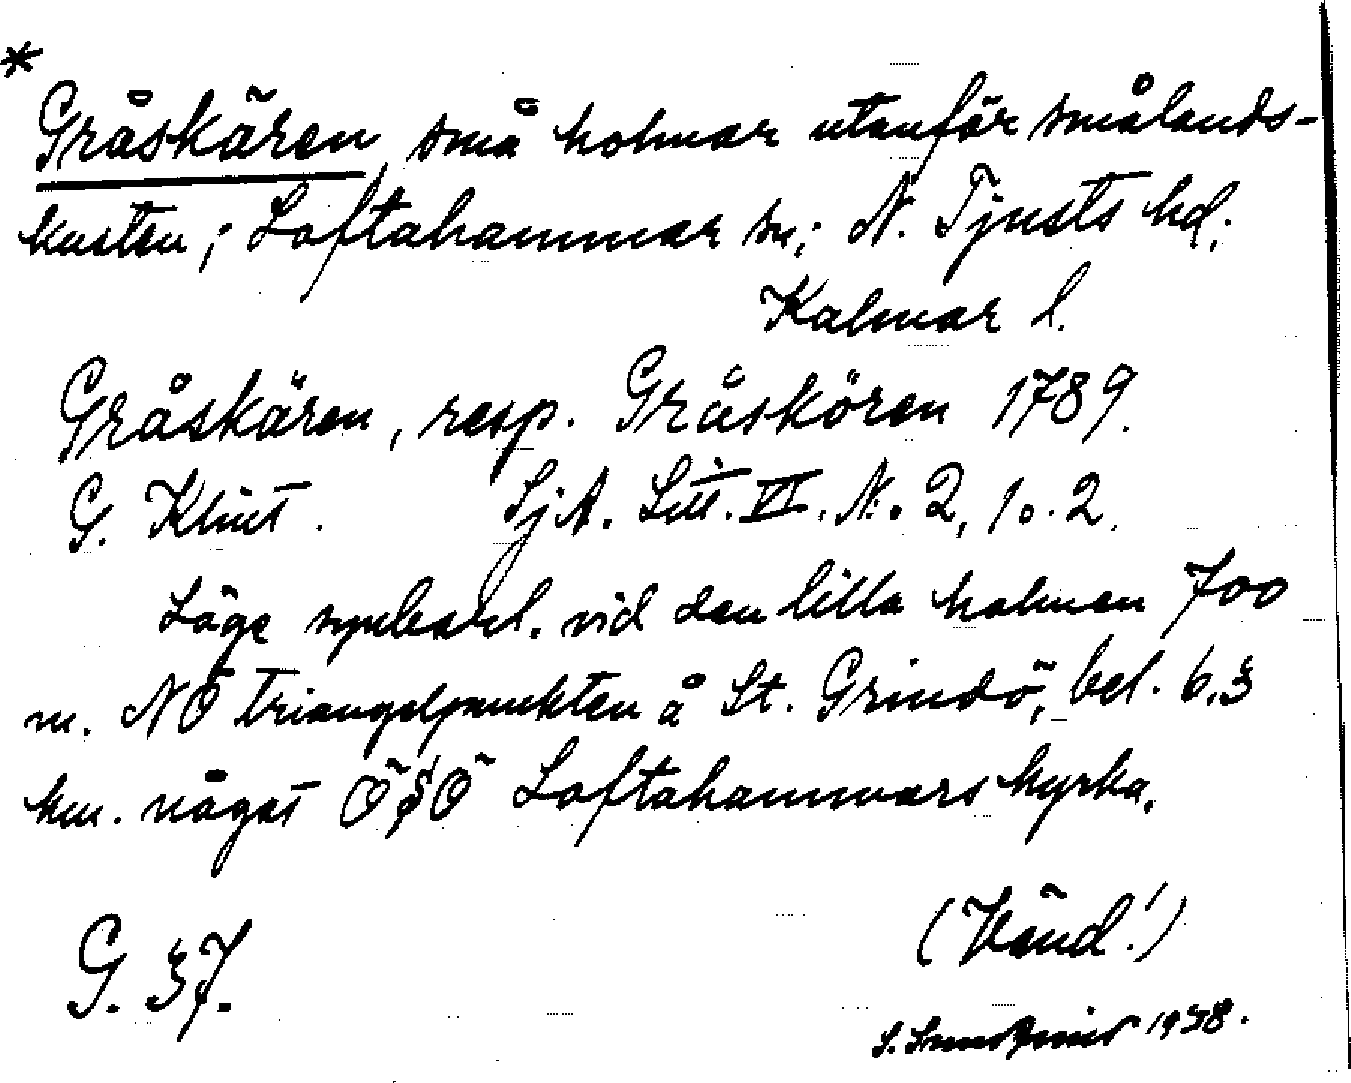 *
Gråskären, små holmar utanför smålands-
kusten; Loftahammar sn; N. Tjusts hd;
Kalmar l.
Gråskären, resp. Gråskören 1789.
G. Klint. SjA. Litt. VI. N:o 2, 1o. 2.
Läge synbarl. vid den lilla holmen 700
m. NO triangelpunkten å St. Grindö, bel. 6,3
km. något ÖSÖ Loftahammars kyrka.
(Vänd!)
G. 37.
1938.